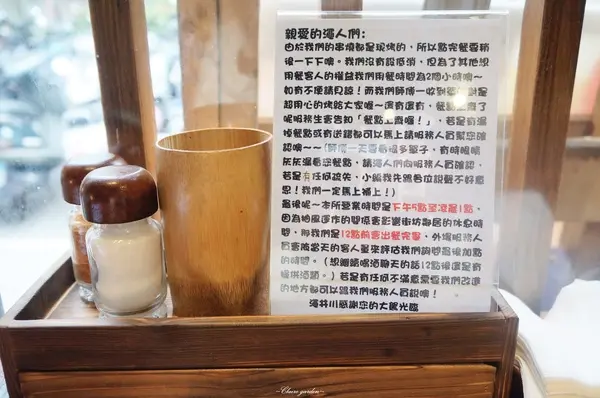 親愛的澤人們：
由於我們的串燒都是現烤的，所以點完餐要稍
後一下下噢。我們沒有設低消，但為了其他想
用餐客人的權益我們用餐時間為2個小時噢～
如有不便請見諒！而我們師傅一收到單
超用心的烤給大家喔～還有還有，餐點
呢服務生會告知「餐點上齊囉！」，若是有漏
掉餐點或有送錯都可以馬上請服務人員幫您確
認噢～～(師傅一天要看很多單子，有時眼睛
灰灰漏看您餐點，請澤人們向服務人員確認，
若是有任何疏失，小飯我先跟各位說聲不好意
思！我們一定馬上補上！)
最後呢～本所營業時間是下午5點至凌晨1點，
因為抽風運作的聲響會影響街坊鄰居的休息時
間，那我們是12點前會出餐完畢，外場服務人
員會依當天的客人量來評估我們詢問最後加點
的時間。(想繼續喝酒聊天的話12點後還是有
提供酒類。)若是有任何不滿意需要我們改進
的地方都可以跟我們服務人員說噢！
澤井川感謝您的大駕光臨
~Choire garden~